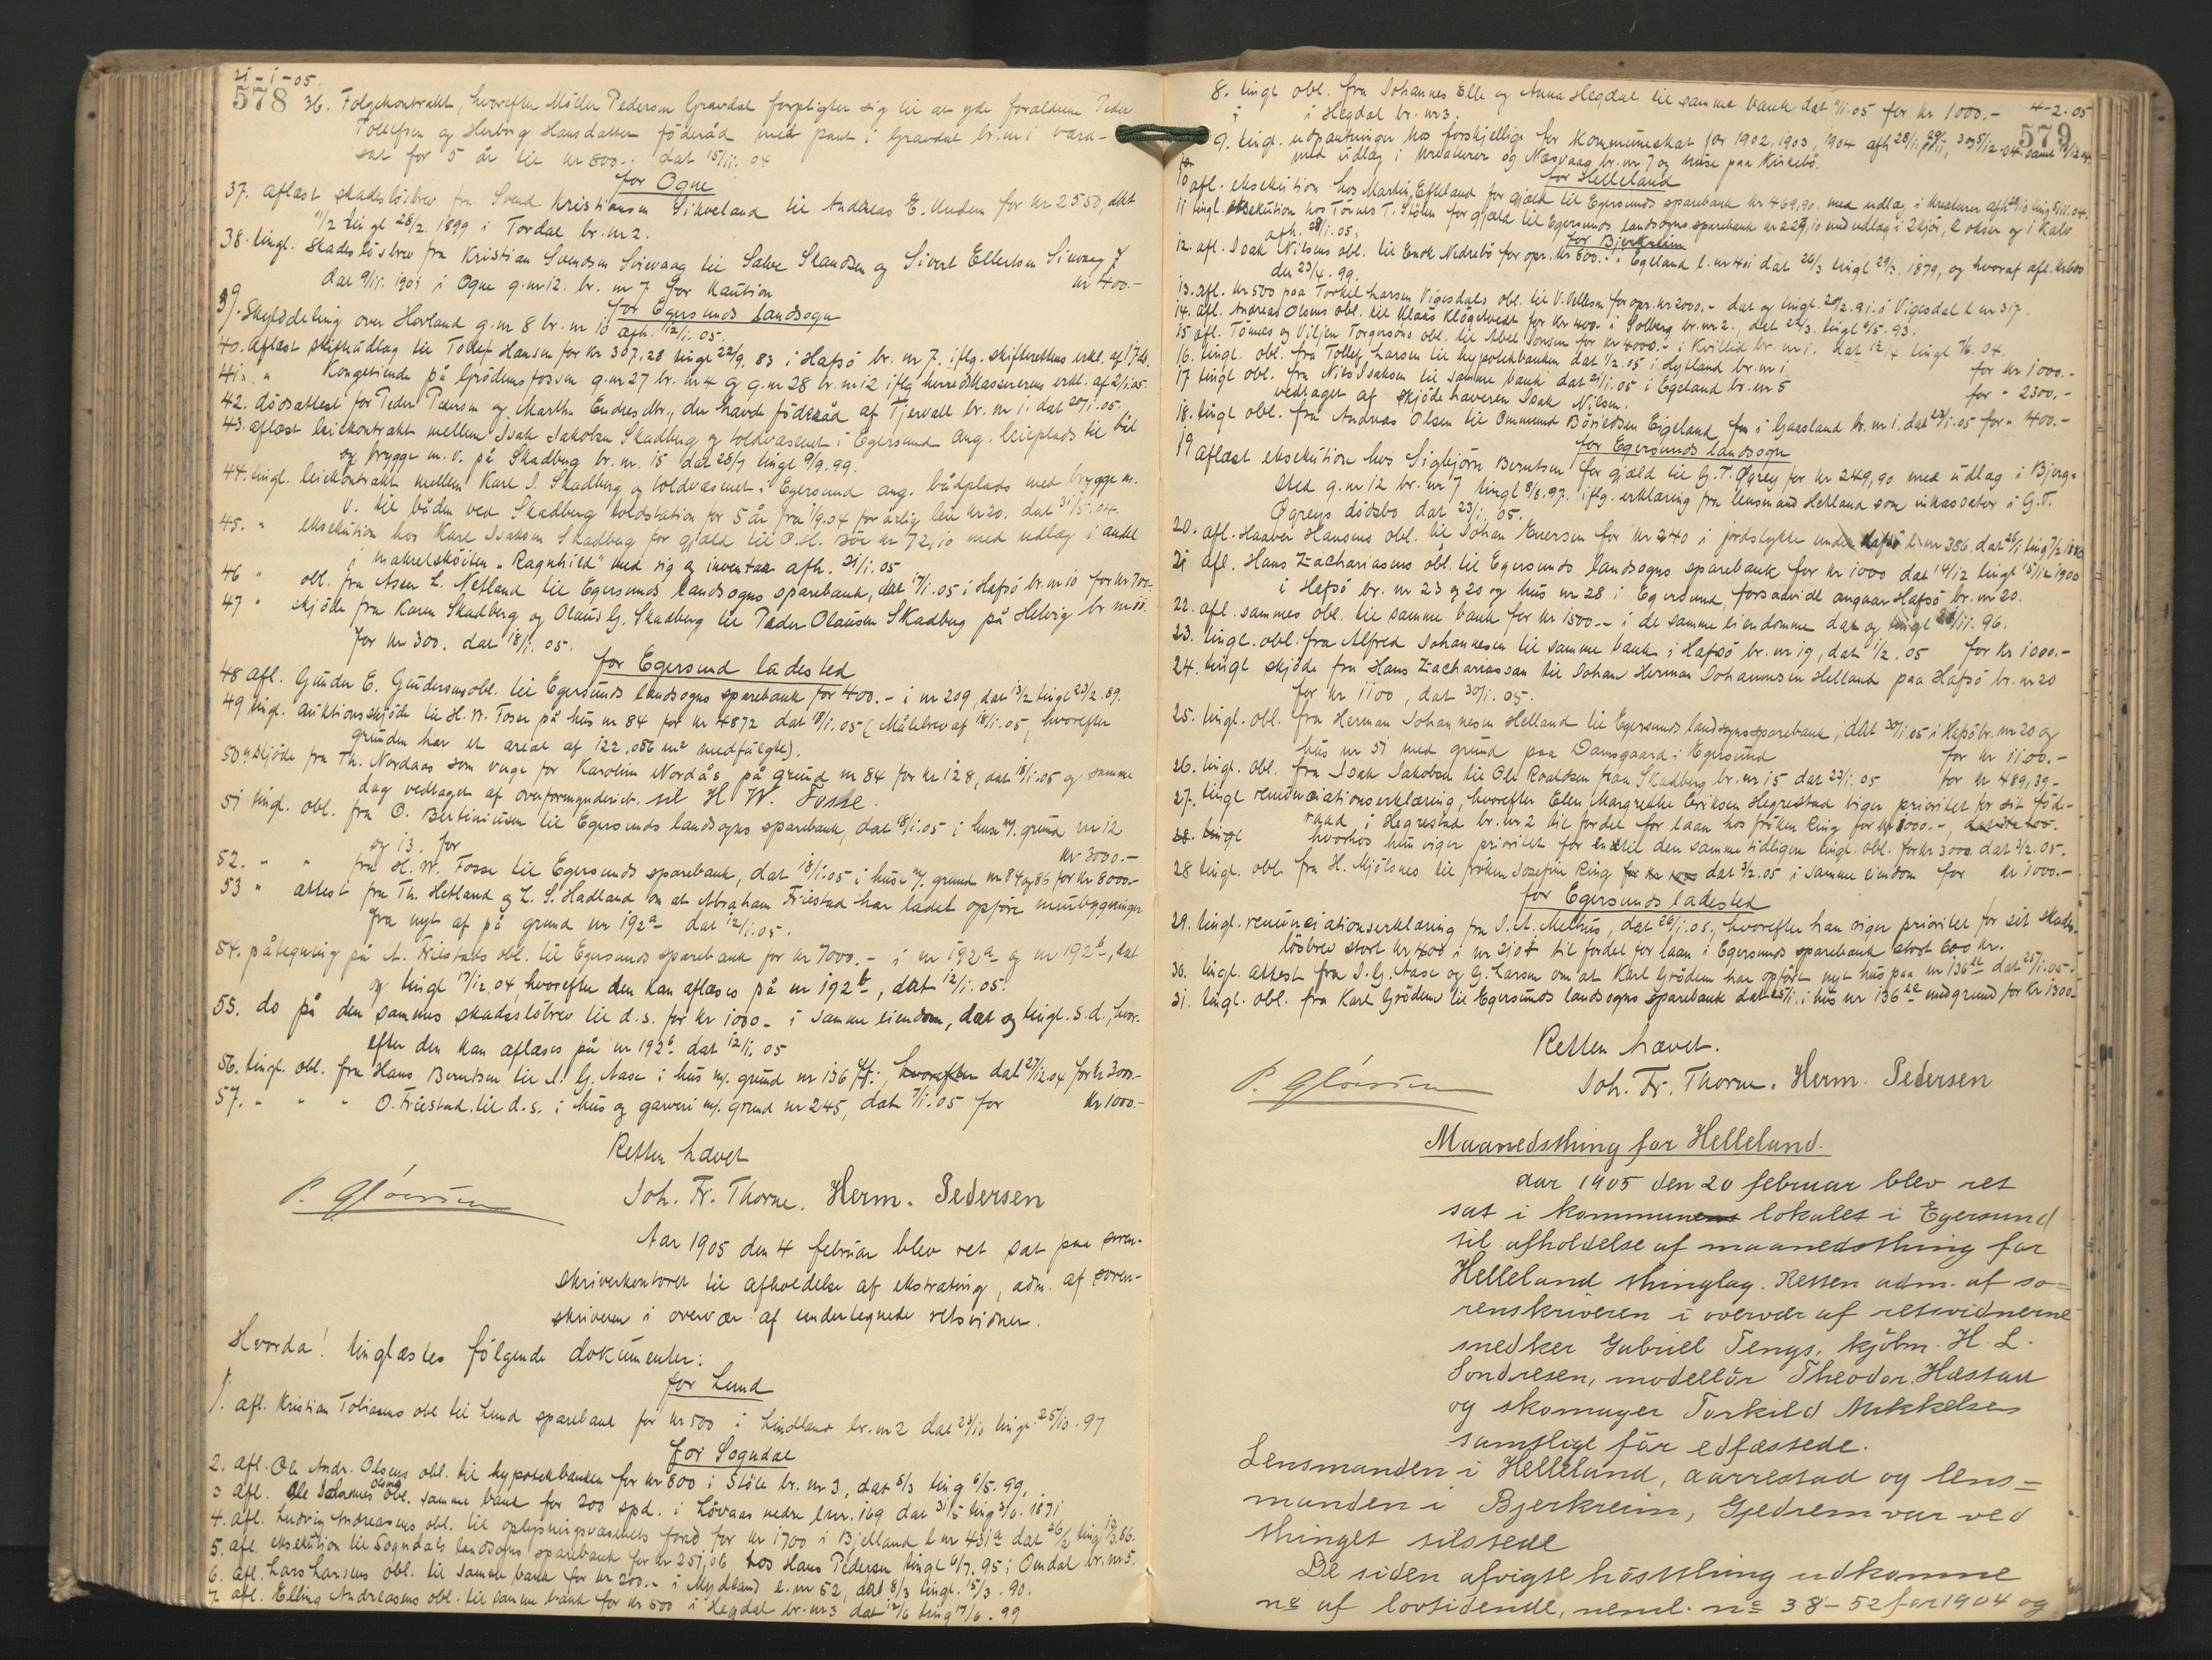 21-1-05.
578
36. Folgekontrakt, hvorefter Möller Pedersen Gravdal forpligter sig til at yde forældrene Peder
Tollefsen og Herborg Hansdatter föderåd med pant i Gravdal br.nr 1 værd-
sat for 5 år til kr 800.- dat 15/11.04
for Ogne
37. aflæst skadeslösbrev fra Svend Kristiansen Sikveland til Andreas E. for kr 2550, dat
11/2 tingl 28/2 1899 i Tordal br.nr 2.
38. tingl. skadeslösbrev fra Kristian Svendsen Sirevaag til Salve Skandsen og Sivert Ellertsen Sirevaag
dat 9/11. 1901 i Ogne g.nr 12. br. nr 7 for kaution kr 400.-
for Egersunds landsogn
39. Skylddeling over Hovland g.nr 8 br.nr 10 afh. 12/1.05.
40. aflæst skifteudlæg til Tollef Hansen for kr 307,28 tingl 22/9. 83 i Hafsö br. nr 7, iflg. skifterettens erkl. af 17 ds.
41. " Kongetiende på Grödemsfossen g.nr 27 br. nr 4 og g.nr 28 br.nr 12 iflg herredskassererens erkl. af 2/1.05.
42. dödsattest for Peder Pedersen og Martha Endresdtr., der havde föderåd af Tjervall br. nr 1. dat 20/1.05.
43. aflæst leiekontrakt mellem Isak Jakobsen Skadberg og toldvæsenet i Egersund ang. leieplads til båt
og brygge m. v. på Skadberg br. nr. 15 dat 28/7 tingl 9/9.99.
44. tingl. leiekontrakt mellem Karl I. Skadberg og toldvæsenet i Egersund ang. bådplads med brygge m.
v. til båden ved Skadberg toldstation for 5 år fra 1/9.04 for årlig leie kr 20. dat 31/5.04.
45. " eksekution hos Karl Isaksen Skadberg for gjæld til O.H. Böe kr 72,10 med udlæg i andel
i makrelsköiten "Ragnhild" med rig og inventar afh. 21/1.05
46 " obl. fra Asser L. Netland til Egersunds landsogns sparebank, dat 17/1.05 i Hafsö br.nr 10 for kr 700.-
47 " skjöde fra Karen Skadberg og Olaus G. Skadberg til Peder Olausen Skadberg på Helvig br nr 11
for kr 300. dat 18/1.05.
for Egersund ladested
48 afl. Gunder E. Gundersens obl. til Egersunds landsogns sparebank for 400.- i nr 209, dat 13/2 tingl 23/2.89.
49 tingl. auktionsskjöde til H. W. Fosse på hus nr 84 for kr 4872 dat 18/1.05 (Målebrev af 18/1.05, hvorefter
grunden har et areal af 122,056 m² medfulgte).
50 " skjöde fra Th. Nordaas som verge for Karoline Nordås, på grund nr 84 for kr 128, dat 18/1.05 og samme
dag vedtaget af overformynderiet. til H W. Fosse.
51 tingl. obl. fra O. Bertiniusen til Egersunds landsogns sparebank, dat 18/1.05 i huse m/. grund nr 12
og 13. for kr 3000.-
52. " " fra H. W. Fosse til Egersunds sparebank, dat 18/1.05 i huse m/. grund nr 84 og 86 for kr 8000.-
53 " attest fra Th. Hetland og L. S. Hadland om at Abraham Friestad har ladet opföre murbygninger
fra nyt af på grund nr 192a dat 12/1.05.
54. påtegning på A. Friestads obl. til Egersunds sparebank for kr 7000.- i nr 192a og nr 192b, dat
og tingl 17/12.04, hvorefter den kan aflæses på nr 192b, dat 12/1.05.
55. do på den sammes skadeslösbrev til d.s. for kr 1000.- i samme eiendom, dat og tingl. s.d., hvor-
efter den kan aflæses på nr 192b dat 12/1.05
56. tingl. obl. fra Hans Berntsen til I. G. Aase i hus m/. grund nr 136 hvorefter dat 27/12.04 for kr 3000.-
57. " " " O. Friestad til d.s. i hus og garveri m/. grund nr 245, dat 7/1.05 for kr 1000.-
Retten hævet
Joh. Fr. Thorne. Herm. Pedersen
Aar 1905 den 4 februar blev ret sat paa soren-
skriverkontoret til afholdelse af ekstrating, adm. af soren-
skriveren i overvær af undertegnede retsvidner.
Hvorda! tinglæstes fölgende dokumenter:
for Lund
1. afl. Kristian Tobiasens obl til Lund sparebank for kr 500 i Lindland br.nr 2 dat 23/10 tingl 25/10.97
for Sogndal
2. afl. Ole Andr. Olsens obl. til hypotekbanken for kr 800 i Stöle br. nr 3, dat 8/3 tingl 6/5. 99.
3 afl. Ole Johannes Olsens obl. samme bank for 200 spd. i Lövaas nedre l.nr. 169 dat 31/5 tingl 3/6. 1871
4. afl. Ludvig Andreasens obl. til oplysningsvæsenets fond for kr 1700 i Bjelland l nr 431a dat 26/2 tingl 13/3.86.
5. afl. eksekution til Sogndals landsogns sparebank for kr 257,06 hos Hans Pedersen tingl 6/7. 95 i Omdal br.nr 5.
6. afl. Lars Larsens obl. til samme bank for kr 200.- i Mydland l. nr 52, dat 8/3 tingl. 15/3. 90.
7. afl. Elling Andreasens obl. til samme bank for kr 500 i Hegdal br.nr 3 dat 12/6 tingl 17/6. 99
4-2-05
579
8. tingl obl. fra Johannes Elle og Anna Hegdal til samme bank dat 11/1.05 for kr 1000.-
i Hegdal br. nr 3.
9. tingl. udpantninger hos forskjellige for kommuneskat for 1902, 1903, 1904
med udlæg i kreaturer og Næsvaag br. nr 7 og huse paa Kirkebö.
for Helleland
10 afl. eksekution hos Martin Efteland for gjæld til Egersunds sparebank kr 469,90. med udlæg i kreaturer
11 tingl. eksekution hos Tönnes T. Stölen for gjæld til Egersunds landsogns sparebank kr 229,10 med udlæg i 2 kjör, 2 okser og 1 kalv
afh. 28/1.05.
for Bjerkreim
12. afl. Isak Nilsens obl. til Enok Nedrebö for opr. kr 800.- i Egeland l. nr 401 dat 26/3 tingl 29/3. 1879, og hvoraf afl.
den 23/4. 99.
13. afl. kr 500 paa Torkel Larsen Vigesdals obl. til V. Ollesen for opr. kr 2000.- dat og tingl. 20/2.91. i Vigesdal l nr 317.
14. afl. Andreas Olsens obl. til Klaus Klögetvedt for kr 400.- i Solberg br.nr 2., dat 24/3. tingl 4/5. 93.
15 afl. Tönnes og Viljen Torgersens obl. til Abel Jonsen for kr 4000.- i Kvillid br.nr 1. dat 12/4 tingl 7/6. 04.
16. tingl. obl. fra Tollef Larsen til hypotekbanken dat 1/2.05 i Hytland br. nr 1 for kr 1000.-
17 tingl obl. fra Nils Isaksen til samme bank dat 21/1.05 i Egeland br. nr 5 for - 2300.-
vedtaget af skjödehaveren Isak Nilsen.
18. tingl obl. fra Andreas Olsen til Ommund Börildsen Eigeland i Gaasland br. nr 1. dat 23/1.05 for - 400.-
for Egersunds landsogn
19 aflæst eksekution hos Sigbjörn Berntsen for gjæld til G. T. Ögrey for kr 249,90 med udlæg i Bjerg-
sted g. nr 12 br. nr 7 tingl 8/8.97. iflg. erklæring fra lensmand Hetland som inkassator i G. T.
Ögreys dödsbo dat 23/1.05.
20. afl. Haaver Hansens obl. til Johan Iversen for kr 240 i jordstykke under Hafsö l.nr 386. dat 26/1 tingl 7/2 1880
21 afl. Hans Zachariasens obl. til Egersunds landsogns sparebank for kr 1000 dat 14/12 tingl 15/12 1900
i Hafsö br. nr 23 og 20 og hus nr 28 i Egersund, forsaavidt angaar Hafsö br. nr 20.
22. afl. sammes obl. til samme bank for kr 1500.- i de samme eiendomme dat og tingl 28/11. 96.
23. tingl. obl. fra Alfred Johannesen til samme bank i Hafsö br. nr 19, dat 1/2.05 for kr 1000.-
24. tingl skjöde fra Hans Zachariassen til Johan Herman Johannesen Helland paa Hafsö br. nr 20
for kr 1100, dat 30/1.05.
25. tingl. obl. fra Herman Johannesen Helland til Egersunds landsogns sparebank, dat 30/1.05 i Hafsö br. nr 20 og
hus nr 51 med grund paa Damsgaard i Egersund for kr 1100.-
26. tingl. obl. fra Isak Jakobsen til Ole Roaldsen fra Skadberg br. nr 15 dat 23/1.05 for kr 489,39.-
27. tingl renunciationserklæring, hvorefter Elen Margrethe Eriksen Hegrestad viger prioritet for sit föde-
raad i Hegrestad br. nr 2 til fordel for laan hos fröken Ring for kr 1000.-,
28. tingl hvorhos hun viger prioritet for en til den samme tidligere tingl. obl. for kr 3000 dat 3/2.05.
28 tingl. obl. fra H. Mjölsnes til fröken Josefine Ring for kr 1000 dat 3/2.05 i samme eiendom for kr 1000.-
for Egersunds ladested
29. tingl. renunciationserklæring fra I. A. Melhus, dat 26/1.05, hvorefter han viger prioritet for sit skades-
lösbrev stort kr 400 i nr 210 til fordel for laan i Egersunds sparebank stort 600 kr.
30. tingl. attest fra I. G. Aase og G. Larsen om at Karl Grödem har opfört nyt hus paa nr 136 dat 25/1.05.
31. tingl. obl. fra Karl Grödem til Egersunds landsogns sparebank dat 25/1. i hus nr 136 med grund for kr 1300.-
Retten hævet.
Joh. Fr. Thorne. Herm. Pedersen
Maanedsthing for Helleland.
Aar 1905 den 20 februar blev ret
sat i kommunens lokalet i Egersund
til afholdelse af maanedsthing for
Helleland thinglag. Retten adm. af so-
renskriveren i overvær af retsvidnerne
snedker Gabriel Tengs, kjöbm. H. L.
Sondresen, modellör Theodor Hæstad
og skomager Torkild Mikkelsen
samtlige för edfæstede.
Lensmanden i Helleland, Aarrestad og lens-
manden i Bjerkreim, Gjedrem var ved
thinget tilstede
De siden afvigte höstthing udkomne
no af lovtidende, neml. no 38-52 for 1904 og